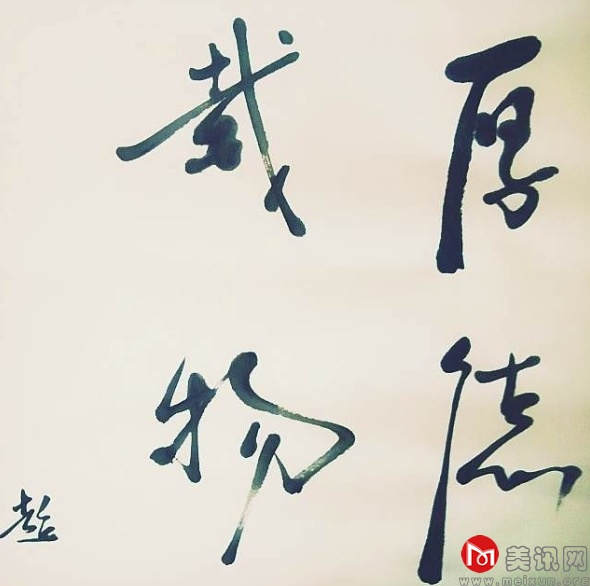 厚德
载物
美讯网
www.meixun.org